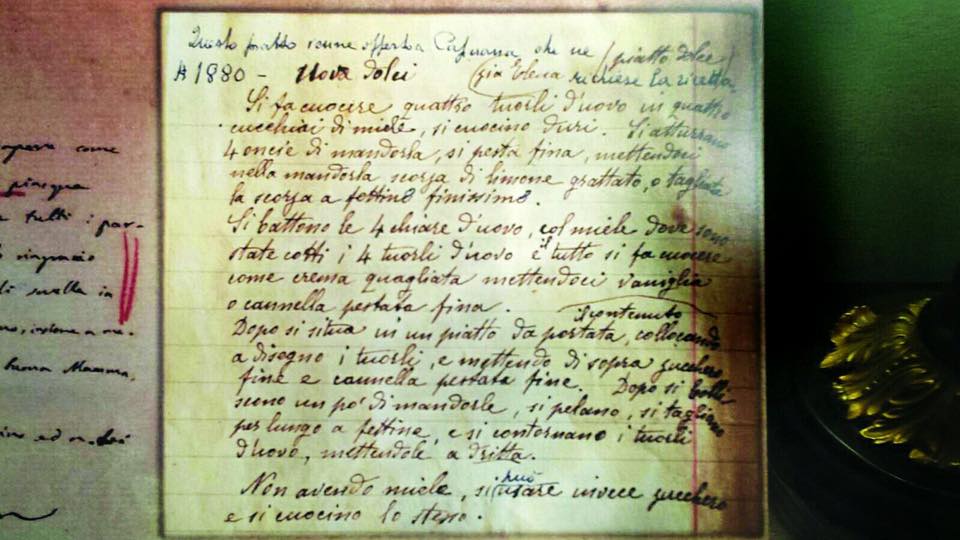 Questo piatto venne offerto a Capuana che ne (piatto dolce)
A 1880 - Uova dolci (zia Elena richiese la ricetta.
Si fa cuocere quattro tuorli d'uovo in quattro
cucchiai di miele, si cuocino duri. Si atturrano
4 oncie di mandorla, si pesta fina, mettendoci
nella mandorla scorza di limone grattato, o tagliata
la scorza a fettine finissime.
Si battono le 4 chiare d'uovo, col miele dove sono
state cotti i 4 tuorli d'uovo e il tutto si fa cuocere
come crema quagliata mettendoci vaniglia
o cannella pestata fina.
il contenuto
Dopo si situa in un piatto da portata, collocando
a disegno i tuorli, e mettendo di sopra zucchero
fine e cannella pestata fine. Dopo si bolli
scono un po' di mandorle, si pelano, si tagliano
per lungo a fettine, e si contornano i tuorli
d'uovo, mettendole a dritta.
Non avendo miele, si può usare invece zucchero
e si cuocino lo stesso.
come
piacqua
tutti i par-
ringrazio
in
insieme a
buona Mamma,
ed